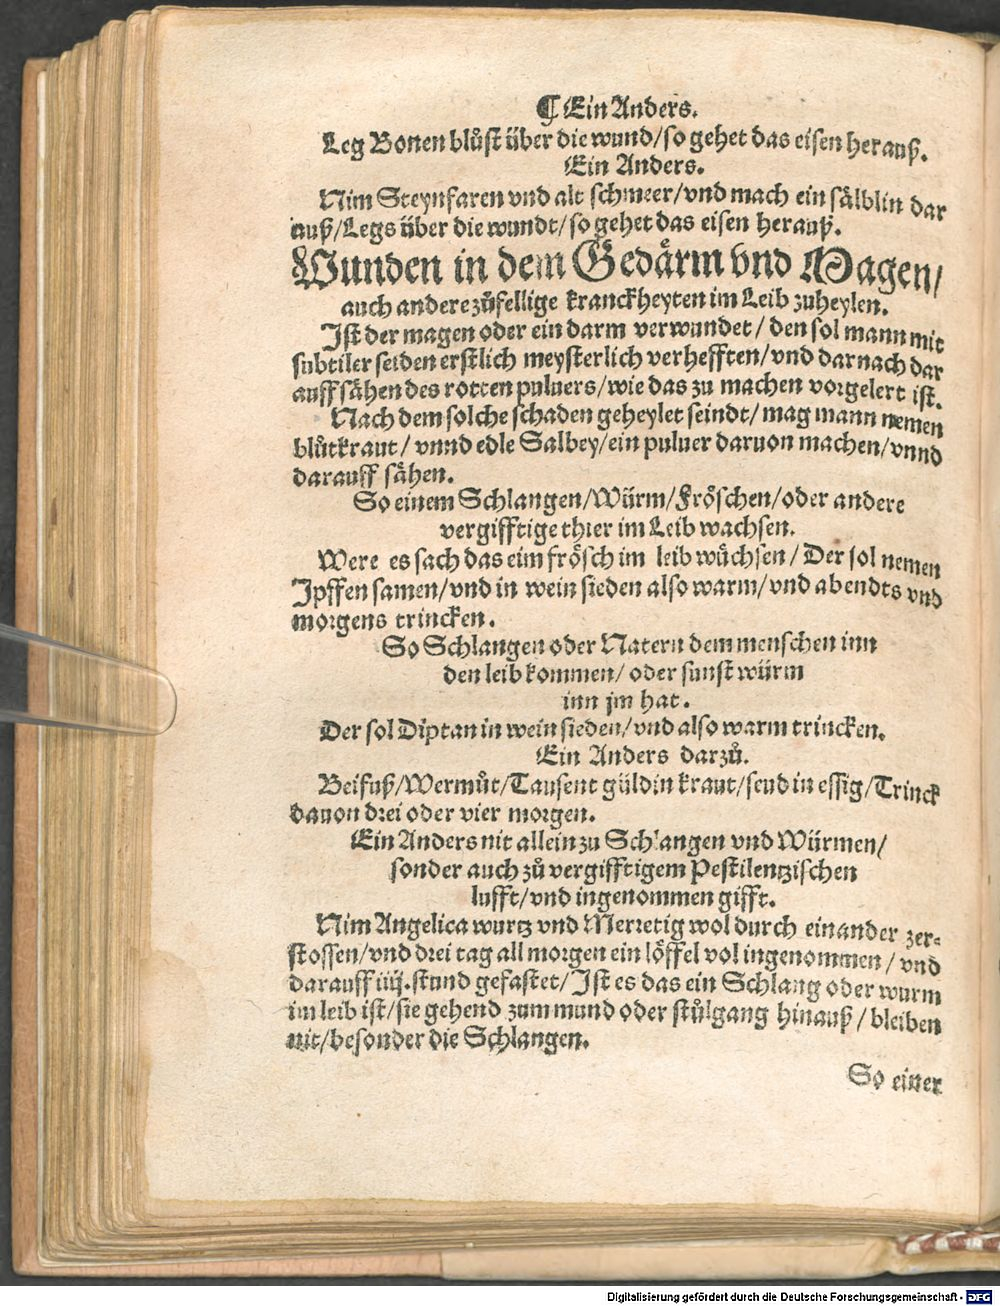 ¶ Ein Anders.
Leg Bonen blůst über die wund/so gehet das eisen herauß.
Ein Anders.
Nim Steynfaren vnd alt schmeer/vnd mach ein sälblin dar
auß/Legs über die wundt/so gehet das eisen herauß.
Wunden in dem Gedärm vnd Magen/
auch andere zůfellige kranckheyten im Leib zuheylen.
Ist der magen oder ein darm verwundet/ den sol mann mit
subtiler seiden erstlich meysterlich verhefften/vnd darnach dar
auff sähen des rotten puluers/wie das zu machen vorgelert ist.
Nach dem solche schaden geheylet seindt/ mag mann nemen
blůtkraut/ vnnd edle Salbey/ein puluer daruon machen/vnnd
darauff sähen.
So einem Schlangen/Würm/Fröschen/oder andere
vergifftige thier im Leib wachsen.
Were es sach das eim frösch im leib wůchsen/ Der sol nemen
Ipffen samen/vnd in wein sieden also warm/vnd abendts vnd
morgens trincken.
So Schlangen oder Natern dem menschen inn
den leib kommen/ oder sunst würm
inn jm hat.
Der sol Diptan in wein sieden/vnd also warm trincken.
Ein Anders darzů.
Beifuß/Wermůt/Tausent güldin kraut/seud in essig/Trinck
dauon drei oder vier morgen.
Ein Anders nit allein zu Schlangen vnd Würmen/
sonder auch zů vergifftigem Pestilentzischen
lufft/vnd ingenommen gifft.
Nim Angelica wurtz vnd Merretig wol durch einander zer-
stossen/vnd drei tag all morgen ein löffel vol ingenommen/ vnd
darauff iiij. stund gefastet/ Ist es das ein Schlang oder wurm
im leib ist/sie gehend zum mund oder stůlgang hinauß/ bleiben
nit/besonder die Schlangen.
So einer
Digitalisierung gefördert durch die Deutsche Forschungsgemeinschaft - DFG